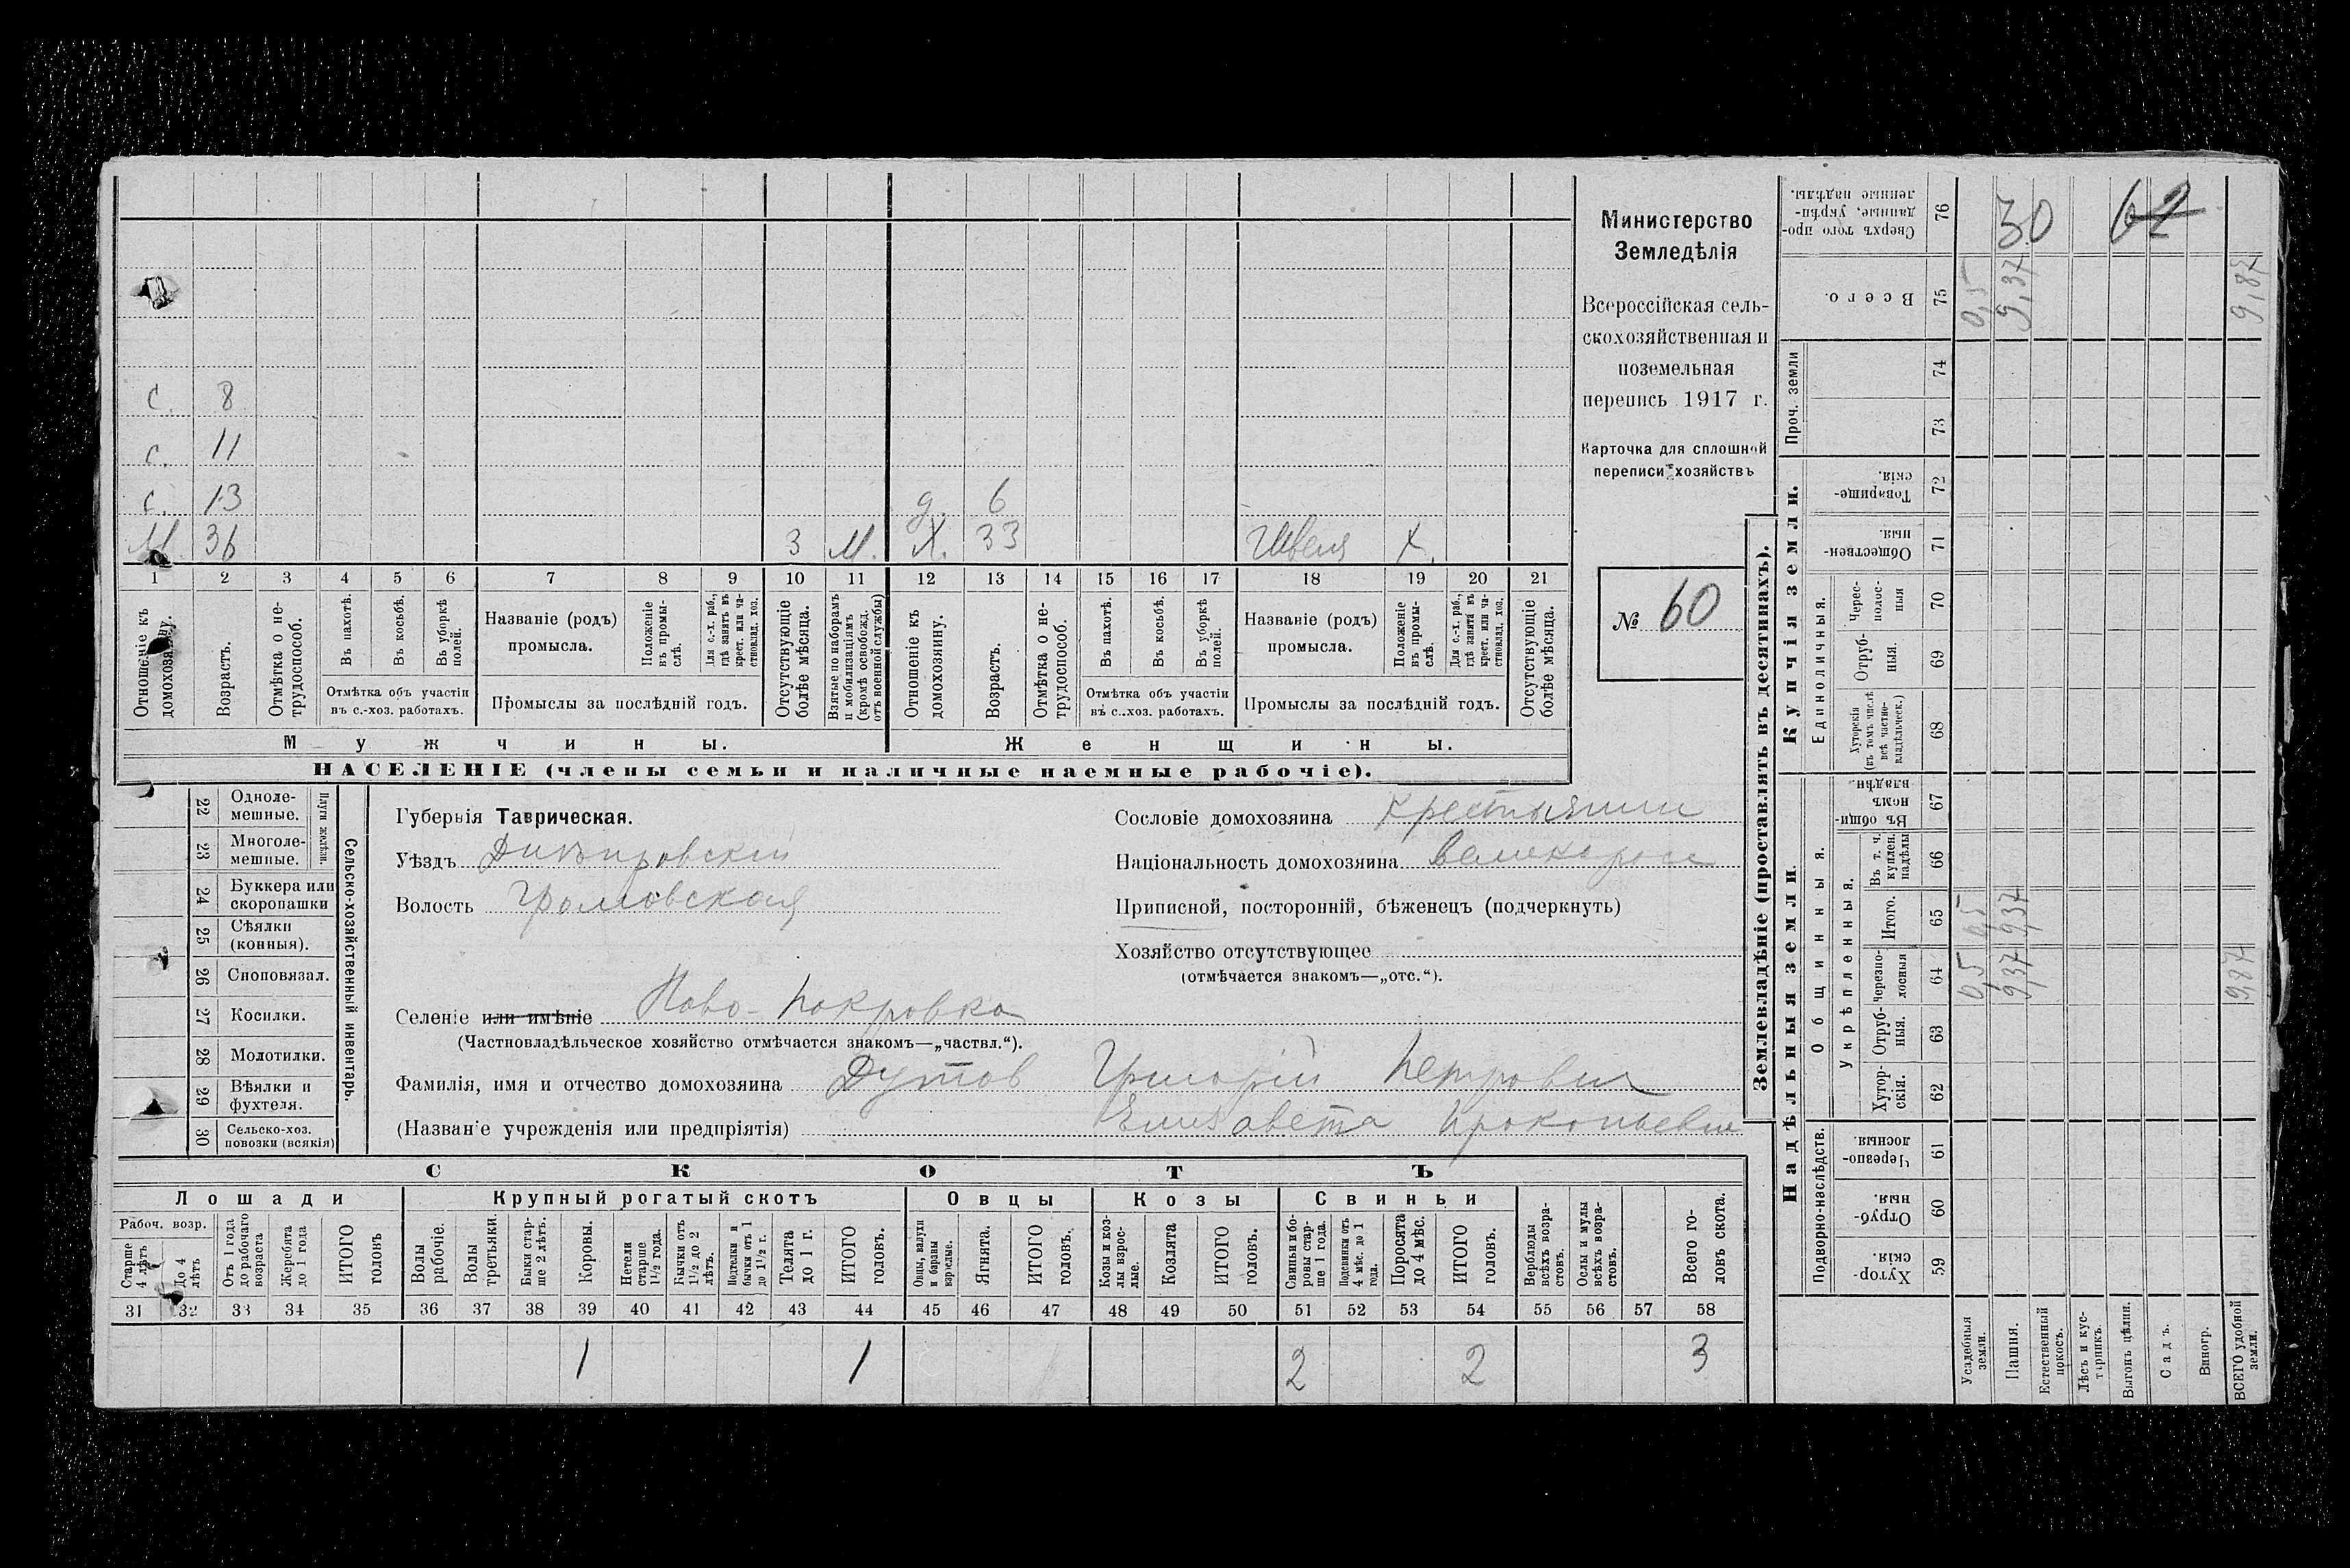 с. 8
с. 11
с. 13 д. 6
М. 36 3 М. Х. 33 Швея Х.
1 2 3 4 5 6 7 8 9 10 11 12 13 14 15 16 17 18 19 20 21
Отношеніе къ домохозяину.
Возрастъ.
Отмѣтка о не-
трудоспособ.
Въ пахотѣ.
Въ косьбѣ.
Въ уборкѣ
полей.
Отмѣтка объ участіи
въ с.-хоз. работахъ.
Названіе (родъ)
промысла.
Положеніе
въ промы-
слѣ.
Для с.-х. раб.,
гдѣ занятъ въ
крест. или ча-
стновлад. хоз.
Промыслы за послѣдній годъ.
Отсутствующіе
болѣе мѣсяца.
Взятые по наборамъ
и мобилизаціямъ
(кромѣ освобожд.
отъ военной службы)
Отношеніе къ
домохозяину.
Возрастъ.
Отмѣтка о не-
трудоспособ.
Въ пахотѣ.
Въ косьбѣ.
Въ уборкѣ
полей.
Отмѣтка объ участіи
въ с.-хоз. работахъ.
Названіе (родъ)
промысла.
Положеніе
въ промы-
слѣ.
Для с.-х. раб.,
гдѣ занята въ
крест. или ча-
стновлад. хоз.
Промыслы за послѣдній годъ.
Отсутствующіе
болѣе мѣсяца.
Мужчины.
Женщины.
НАСЕЛЕНІЕ (члены семьи и наличные наемные рабочіе).
Министерство
Земледѣлія
Всероссійская сель-
скохозяйственная и
поземельная
перепись 1917 г.
Карточка для сплошной
переписи хозяйствъ
№ 60
22 Одноле-
мешные.
23 Многоле-
мешные.
Плуги желѣзн.
24 Буккера или
скоропашки
25 Сѣялки
(конныя).
26 Сноповязал.
27 Косилки.
28 Молотилки.
29 Вѣялки и
фухтеля.
30 Сельско-хоз.
повозки (всякія)
Сельско-хозяйственный инвентарь.
Губернія Таврическая.
Уѣздъ Днѣпровскій
Волость Громовская
Селеніе или имѣніе Ново-Покровка
(Частновладѣльческое хозяйство отмѣчается знакомъ—„частвл.“).
Фамилія, имя и отчество домохозяина Дутов Григорій Петрович
(Названіе учрежденія или предпріятія) Елизавета Прокопьевна
Сословіе домохозяина Крестьянин
Національность домохозяина великоросс
Приписной, посторонній, бѣженецъ (подчеркнуть)
Хозяйство отсутствующее
(отмѣчается знакомъ—„отс.“).
СКОТЪ
Лошади
Крупный рогатый скотъ
Овцы
Козы
Свиньи
Рабоч. возр.
Старше
4 лѣтъ
До 4
лѣтъ
Отъ 1 года
до рабочаго
возраста
Жеребята
до 1 года
ИТОГО
головъ
Волы
рабочіе.
Волы
третьяки.
Быки стар-
ше 2 лѣтъ.
Коровы.
Нетели
старше
1½ года.
Бычки отъ
1½ до 2
лѣтъ.
Подтелки и
бычки отъ 1
до 1½ г.
Телята
до 1 г.
ИТОГО
головъ.
Овцы, валухи
и бараны
взрослые.
Ягнята.
ИТОГО
головъ.
Козы и коз-
лы взрос-
лые.
Козлята
ИТОГО
головъ.
Свиньи и бо-
ровы стар-
ше 1 года.
Подсвинки отъ
4 мѣс. до 1
года.
Поросята
до 4 мѣс.
ИТОГО
головъ.
Верблюды
всѣхъ возра-
стовъ.
Ослы и мулы
всѣхъ возра-
стовъ.
Всего го-
ловъ скота.
31 32 33 34 35 36 37 38 39 40 41 42 43 44 45 46 47 48 49 50 51 52 53 54 55 56 57 58
1 1 2 2 3
Землевладѣніе (проставлять въ десятинахъ).
Купчія земли.
Надѣльныя земли.
Сверхъ того про-
данные, укрѣп-
ленные надѣлы.
76 30 62
Всего.
75 0,5 9,37 9,87
Проч. земли
74
73
Товарище-
скія.
72
Обществен-
ныя.
71
Единоличныя.
Черес-
полос-
ныя
70
Отруб-
ныя.
69
Хуторскія
(въ томъ числѣ
всѣ частно-
владѣльческ.)
68
Общинныя.
Въ общин-
номъ
владѣн.
67
Укрѣпленныя.
Въ т. ч.
куплен.
надѣлы
66
Итого.
65 0,5 9,37
Черезпо-
лосныя
64 0,5 9,37 9,87
Отруб-
ныя.
63
Хутор-
скія.
62
Подворно-наслѣдств.
Черезпо-
лосныя.
61
Отруб-
ныя.
60
Хутор-
скія.
59
Усадебныя
земли.
Пашня.
Естественный
покосъ.
Лѣсъ и кус-
тарникъ.
Выгонъ цѣлин.
Садъ.
Виногр.
ВСЕГО удобной
земли.